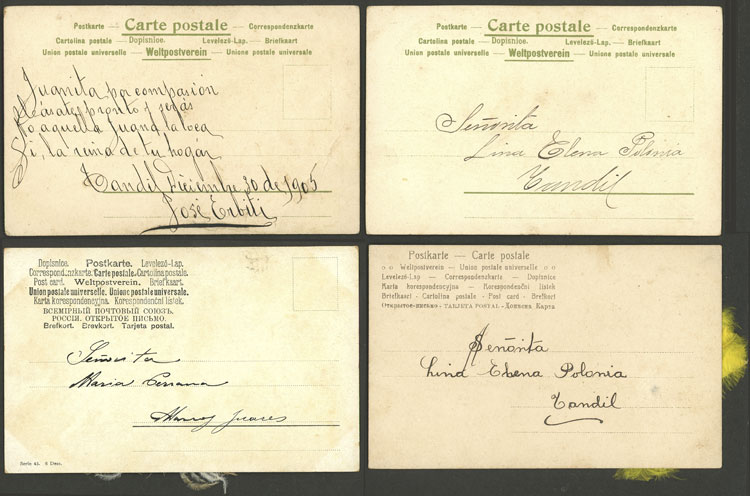 Postkarte — Carte postale — Correspondenzkarte
Cartolina postale — Dopisnice. — Levelező-Lap. — Briefkaart
Union postale universelle — Weltpostverein — Unione postale universale
Juanita por compasión
Casate pronto y serás
No aquella Juana la loca
Si, la reina de tu hogar
Tandil Diciembre 30 de 1905
José Erbiti
Postkarte — Carte postale — Correspondenzkarte
Cartolina postale — Dopisnice. — Levelező-Lap. — Briefkaart
Union postale universelle — Weltpostverein — Unione postale universale
Señorita
Lina Elena Polonia
Tandil
Dopisnice. Postkarte. Levelező-Lap.
Correspondenzkarte. Carte postale. Cartolina postale.
Post card. Weltpostverein. Briefkaart.
Union postale universelle. Unione postale universale.
Karta korespondencyjna. Korespondenční lístek.
ВСЕМІРНЫЙ ПОЧТОВЫЙ СОЮЗЪ.
РОССІЯ. ОТКРЫТОЕ ПИСЬМО.
Brefkort. Brevkort. Tarjeta postal.
Señorita
Maria
Juares
Serie 41. 6 Dess.
Postkarte — Carte postale
Weltpostverein — Union postale universelle
Levelező-Lap — Correspondenzkarte — Dopisnice
Karta korespondencyjna — Korespondenční lístek
Briefkaart - Cartolina postale - Post card - Brefkort
Открытое письмо - TARJETA POSTAL -
Señorita
Lina Elena Polonia
Tandil